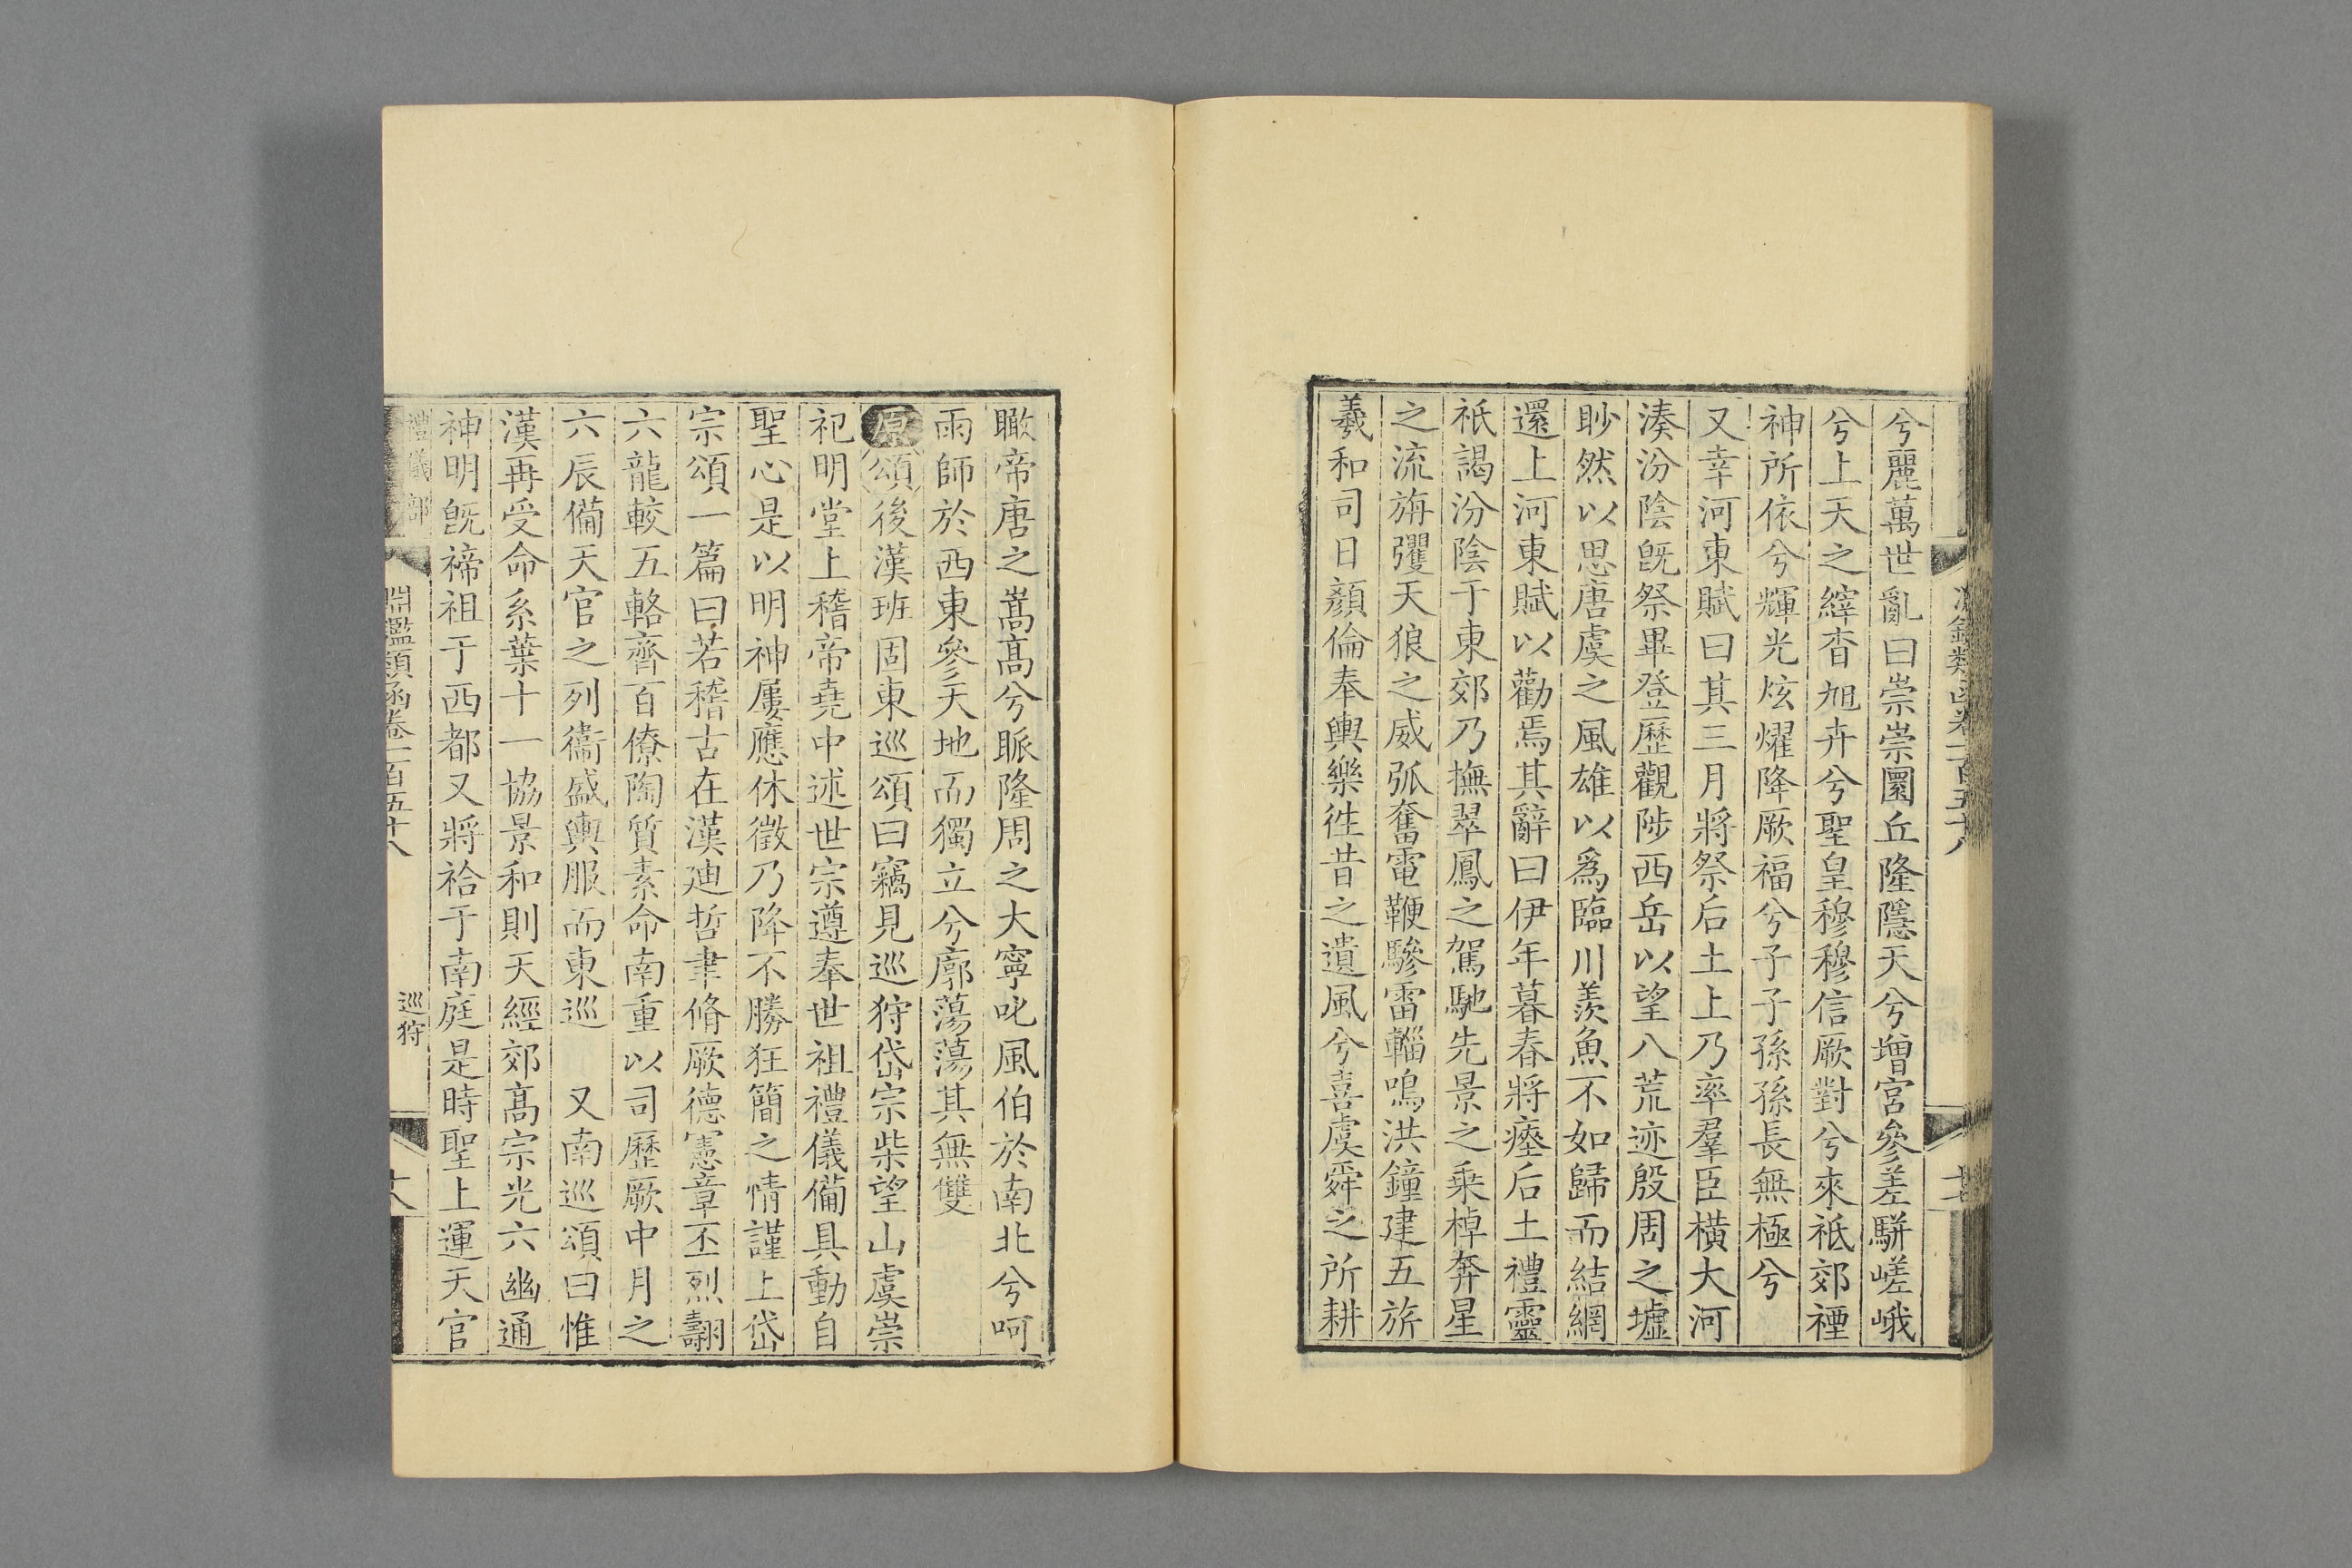 兮麗萬世亂曰崇崇圜丘隆隱天兮增宮參差駢嵯峨
兮上天之縡杳旭卉兮聖皇穆穆信厥對兮來祗郊禋
神所依兮輝光炫燿降厥福兮子子孫孫長無極兮
又幸河東賦曰其三月將祭后土上乃率羣臣橫大河
湊汾陰旣祭畢登歷觀陟西岳以望八荒迹殷周之墟
眇然以思唐虞之風雄以爲臨川羨魚不如歸而結網
還上河東賦以勸焉其辭曰伊年暮春將瘞后土禮靈
祇謁汾陰于東郊乃撫翠鳳之駕馳先景之乗棹奔星
之流旃彏天狼之威弧奮電鞭驂雷輜鳴洪鐘建五旂
羲和司日顏倫奉輿樂徃昔之遺風兮喜虞舜之所耕
瞰帝唐之嵩髙兮脈隆周之大寧叱風伯於南北兮呵
雨師於西東參天地而獨立兮廓蕩蕩其無雙
原頌後漢班固東巡頌曰竊見巡狩岱宗柴望山虞崇
祀明堂上稽帝堯中述世宗遵奉世祖禮儀備具動自
聖心是以明神屢應休徵乃降不勝狂簡之情謹上岱
宗頌一篇曰若稽古在漢迪哲聿脩厥德憲章丕烈翿
六龍較五輅齊百僚陶質素命南重以司歷厥中月之
六辰備天官之列衞盛輿服而東巡　又南巡頌曰惟
漢再受命系葉十一協景和則天經郊髙宗光六幽通
神明旣禘祖于西都又將祫于南庭是時聖上運天官
禮儀部
淵鑑類函卷一百五十八
巡狩
十八